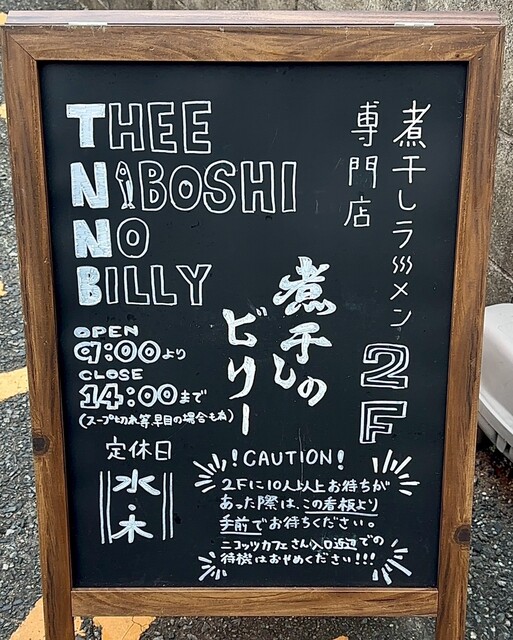 THEE
NIBOSHI
NO
BILLY
煮干しラーメン
専門店
煮干しの
ビリー
2F
OPEN
9:00より
CLOSE
14:00まで
(スープ切れ等早目の場合も有)
定休日
水・木
!CAUTION!
2Fに10人以上お待ちが
あった際は、この看板より
手前でお待ちください。
ニコッツカフェさん入口近辺での
待機はおやめください!!!